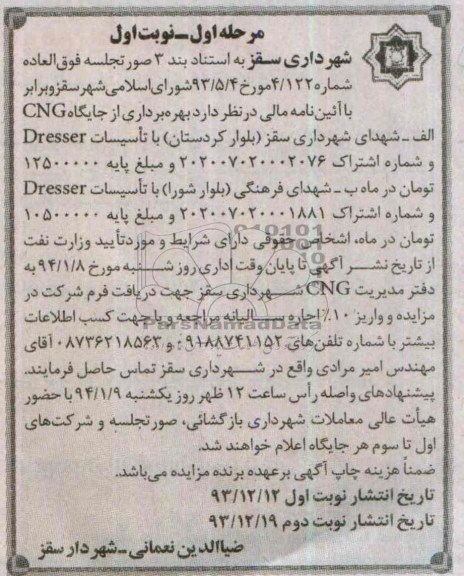 مرحله اول ـ نوبت اول
شهرداری سقز به استناد بند ۳ صورتجلسه فوق‌العاده
شماره ۴/۱۲۲مورخ ۹۳/۵/۴شورای اسلامی شهر سقز و برابر
با آئین نامه مالی در نظر دارد بهره‌برداری از جایگاه CNG
الف ـ شهدای شهرداری سقز (بلوار کردستان) با تأسیسات Dresser
و شماره اشتراک ۲۰۲۰۰۷۰۲۰۰۰۲۰۷۶ و مبلغ پایه ۱۲۵۰۰۰۰۰
تومان در ماه ب ـ شهدای فرهنگی (بلوار شورا) با تأسیسات Dresser
و شماره اشتراک ۲۰۲۰۰۷۰۲۰۰۰۱۸۸۱ و مبلغ پایه ۱۰۵۰۰۰۰۰
تومان در ماه، اشخاص حقوقی دارای شرایط و مورد تأیید وزارت نفت
از تاریخ نشر آگهی تا پایان وقت اداری روز شنبه مورخ ۹۴/۱/۸ به
دفتر مدیریت CNG شهرداری سقز جهت دریافت فرم شرکت در
مزایده و واریز ۱۰٪ اجاره سالیانه مراجعه و یا جهت کسب اطلاعات
بیشتر با شماره تلفن‌های ۰۹۱۸۸۷۴۱۱۵۲ و ۰۸۷۳۶۲۱۸۵۶۳ آقای
مهندس امیر مرادی واقع در شهرداری سقز تماس حاصل فرمایند.
پیشنهادهای واصله رأس ساعت ۱۲ ظهر روز یکشنبه ۹۴/۱/۹ با حضور
هیأت عالی معاملات شهرداری بازگشائی، صورتجلسه و شرکت‌های
اول تا سوم هر جایگاه اعلام خواهند شد.
ضمناً هزینه چاپ آگهی بر عهده برنده مزایده می‌باشد.
تاریخ انتشار نوبت اول ۹۳/۱۲/۱۲
تاریخ انتشار نوبت دوم ۹۳/۱۲/۱۹
ضیاالدین نعمانی ـ شهردار سقز
ParsNamadData